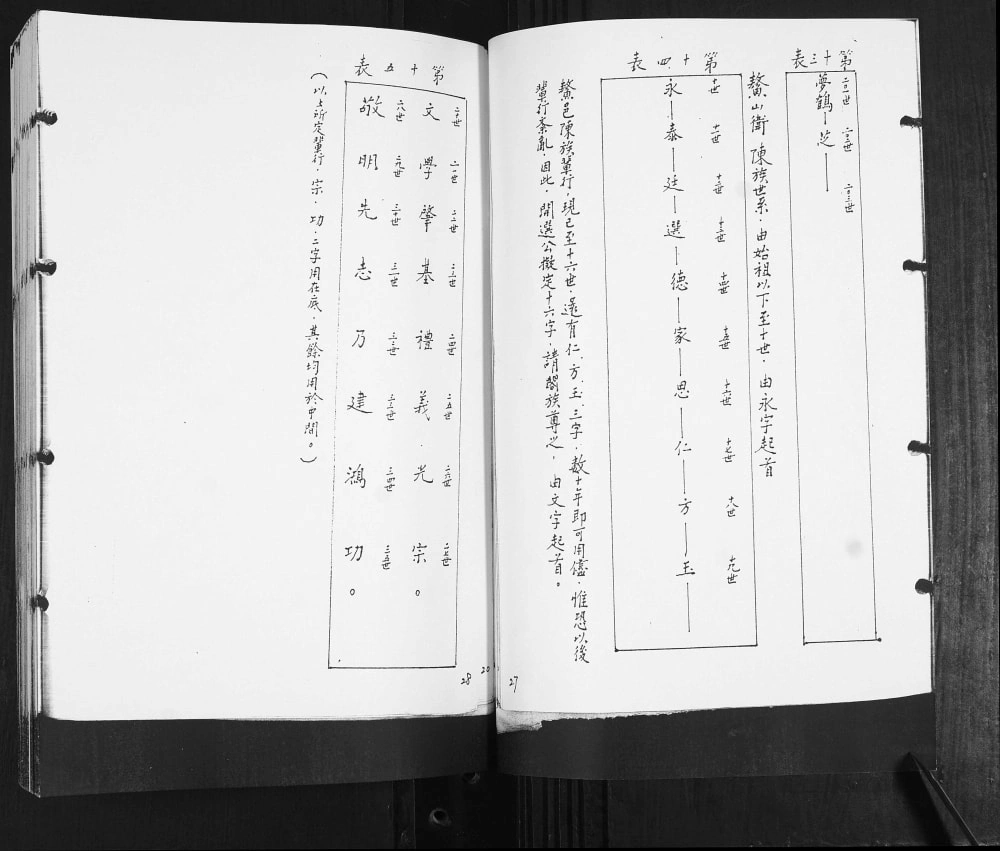 第十三表
二一世 二二世 二三世
夢鶴—芝—
鰲山衛陳族世系．由始祖以下至十世．由永字起首
第十四表
十世 十一世 十二世 十三世 十四世 十五世 十六世 十七世 十八世 十九世
永—泰—廷—選—德—家—思—仁—方—玉—
鰲邑陳族輩行，現已至十六世．還有仁．方．玉．三字．數十年即可用儘．惟恐以後
輩行紊亂．因此．開選公擬定十六字．請闔族尊之．由文字起首。
第十五表
二十世 二一世 二二世 二三世 二四世 二五世 二六世 二七世
文學肇基禮義．光宗。
二八世 二九世 三十世 三一世 三二世 三三世 三四世 三五世
敬明先志乃建鴻功。
（以上所定輩行．宗．功．二字用在底．其餘均用於中間。）
27
20
28